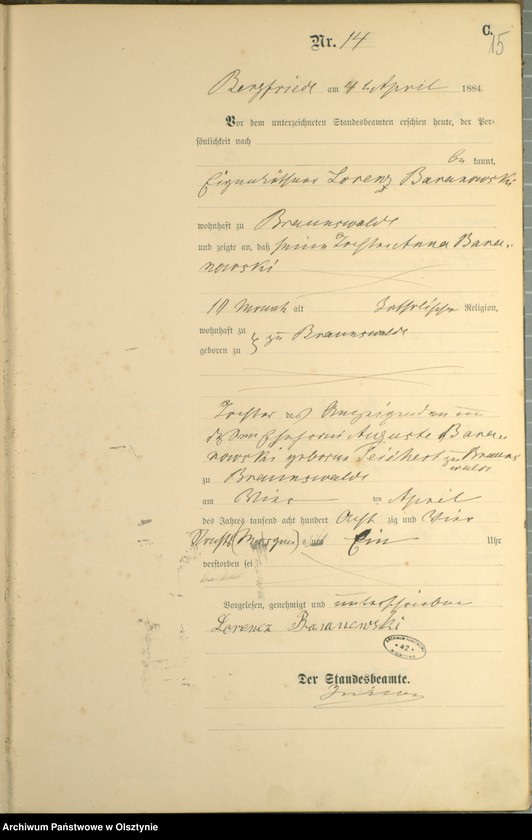 C.
15
Nr. 14
Bergfriede am 4 ten April 1884.
Vor dem unterzeichneten Standesbeamten erschien heute, der Per-
sönlichkeit nach
be kannt,
Eigenkäthner Lorenz Baranowski
wohnhaft zu Braunswalde
und zeigte an, daß seine Tochter Anna Bara-
nowski
10 Monat alt katholischer Religion,
wohnhaft zu
geboren zu } zu Braunswalde
Tochter des Anzeigenden und
dessen Ehefrau Auguste Bara-
nowski geborne Teichert zu Brauns
walde
zu Braunswalde
am Vier ten April
des Jahres tausend acht hundert Acht zig und Vier
(Morgens) um Ein Uhr
verstorben sei
Vorgelesen, genehmigt und unterschrieben
Lorenz Baranowski
Der Standesbeamte.
Archiwum Państwowe w Olsztynie